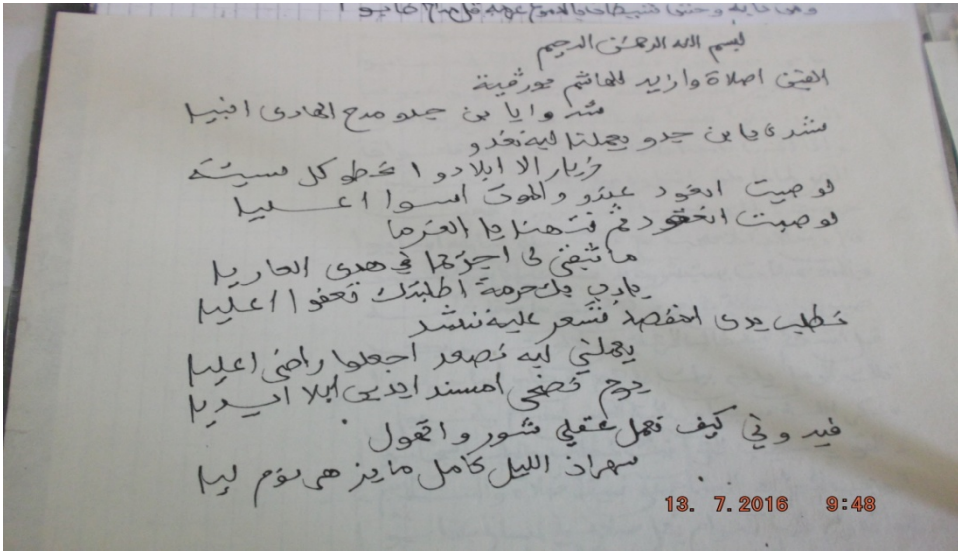 بسم الله الرحمن الرحيم
الفين اصلاة وازيد للهاشم بورقية
شد وايا بن جدو مدح الهادى انبيا
نشدى يا بن جدو يحملنا ليه نغدو
زيار الا ابلادو اتحطو كل سيئة
لوصيت انعود عبدو والموت اسوا اعليا
لوصيت انعقود ثم فتهنا يا
ما تبقى لى اجرتها في هدى العاريا
يا ربي بك حرمة اطلبتك تعفوا اعليا
نطلب يدى نشعر عليه ننشد
يحملني ليه نصعد اجعلها راضى اعليا
يوم نضحى امسند ايديى ابلا اسديا
فيدوني كيف نعمل عقلي شور واتحول
سهران الليل كامل ما يزهى نوم ليا
13. 7.2016 9:48